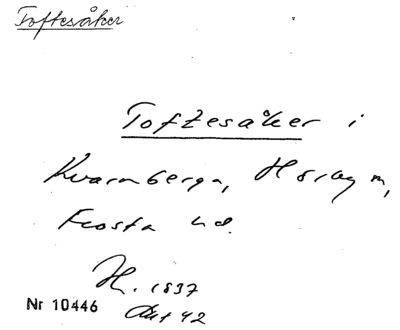 Toftesåker
Toftesåker i
Kvarnberga,
Frosta hd.
H. 1837
Akt 42
Nr 10446